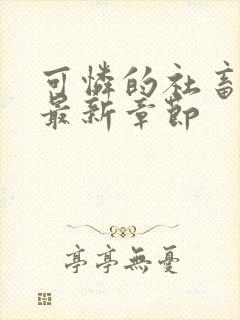 可憐的社畜
最新章節
亭亭無憂